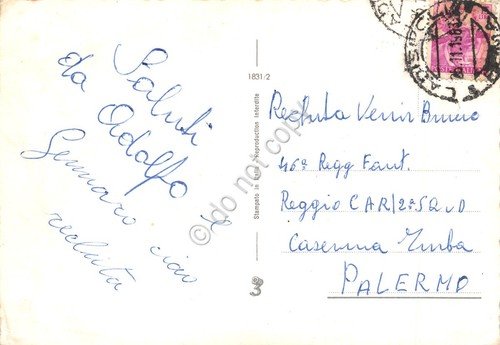 Saluti
da Adolfo e
Gennaro ciao
recluta
1831/2
Stampato in Italia - Reproduction interdite
do not copy
Recluta Venir Bruno
46º Regg Fant.
Reggio CAR/2ª SQ.D
Caserma Turba
PALERMO